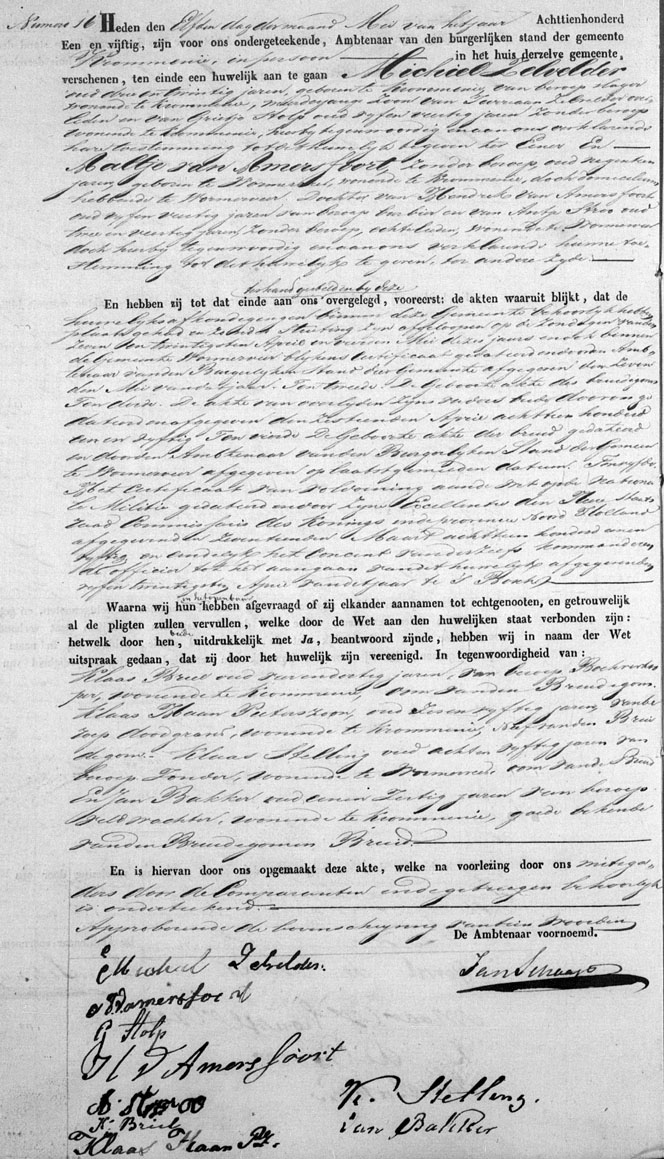 Numero 16 Heden den Elfden dag der maand Mei van het jaar Achttienhonderd
Een en vijftig, zijn voor ons ondergeteekende, Ambtenaar van den burgerlijken stand der gemeente
Krommenie, in persoon in het huis derzelve gemeente,
verschenen, ten einde een huwelijk aan te gaan Michiel Zelvelder
oud drie en twintig jaren, geboren te Krommenie van beroep slager
wonende te Krommenie, meerderjarige zoon van
leden en van Grietje Stolp oud vijf en veertig jaren zonder beroep
wonende te Krommenie, hierbij tegenwoordig en aan ons verklarende
hare toestemming tot dit huwelijk te geven ter Eener En
Maltje van Amersfoort, zonder beroep, oud negentien
jaren, geboren te Wormerveer, wonende te Krommenie, doch domicilium
hebbende te Wormerveer, Dochter van Hendrik van Amersfoort
oud vijf en veertig jaren van beroep barbier en van Antje Stroo oud
twee en veertig jaren, zonder beroep, echtelieden, wonende te Wormerveer
doch hierbij tegenwoordig en aan ons verklarende hunne toe-
stemming tot dit huwelijk te geven, ter andere zijde
ter hand gesteld en by deze
En hebben zij tot dat einde aan ons overgelegd, vooreerst: de akten waaruit blijkt, dat de
huwelijksafkondigingen binnen deze Gemeente behoorlijk hebben
plaats gehad en zonder stuiting zijn afgeloopen op de Zondagen van den
zeven en twintigsten April en vierden Mei dezes jaars en ook binnen
de Gemeente Wormerveer blijkens certificaat gedateerd en door den Ambte-
naar van den Burgerlijken Stand der Gemeente afgegeven den zeven
den Mei van dit jaar. Ten tweede. De Geboorte akte des bruidegoms
Ten derde. De akte van overlijden zijns vaders beide door ons ge-
dateerd en afgegeven den zestienden April achttien honderd
een en vijftig Ten vierde De Geboorte akte der bruid gedateerd
en door den Ambtenaar van den Burgerlijken Stand der Gemeente
te Wormerveer afgegeven op laatstgemelden datum. Ten vijfde.
Het certificaat van voldoening aan de wet op de Nationa-
le Militie gedateerd en door Zijne Excellentie den Heer Staats
raad Commissaris des Konings in de provincie Noord Holland
afgegeven den zeventienden Maart achttien honderd een en
vijftig en eindelijk het Consent van deszelfs kommanderen-
de officier tot het aangaan van dit huwelijk afgegeven den
vijf en twintigsten April van dit jaar te 's Bosch
in het openbaar
Waarna wij hun hebben afgevraagd of zij elkander aannamen tot echtgenooten, en getrouwelijk
al de pligten zullen vervullen, welke door de Wet aan den huwelijken staat verbonden zijn:
beide
hetwelk door hen, uitdrukkelijk met Ja, beantwoord zijnde, hebben wij in naam der Wet
uitspraak gedaan, dat zij door het huwelijk zijn vereenigd. In tegenwoordigheid van:
Klaas Briel oud jaren, van beroep
per, wonende te Krommenie, oom van den Bruidegom.
Klaas Haan Pieterszoon, oud zeven en vijftig jaren, van be-
roep doodgraver, wonende te Krommenie, Neef van den Brui-
degom. Klaas Stelling oud acht en vijftig jaren van
beroep, wonende te Wormerveer oom van de Bruid
En Jan Bakker oud een en zestig jaren van beroep
veldwachter, wonende te Krommenie, goede bekende
van den Bruidegom en Bruid.
En is hiervan door ons opgemaakt deze akte, welke na voorlezing door ons mitsga-
ders door de Comparanten en de getuigen behoorlijk
is onderteekend.
Approberende de bovenschrijving van tien woorden
De Ambtenaar voornoemd.
Michiel Zelvelder.
M V amersfoort
G Stolp
H V Amersfoort
A. Stroo
K. Briel
Klaas Haan Pz.
Jan Schaap
K. Stelling.
Jan Bakker